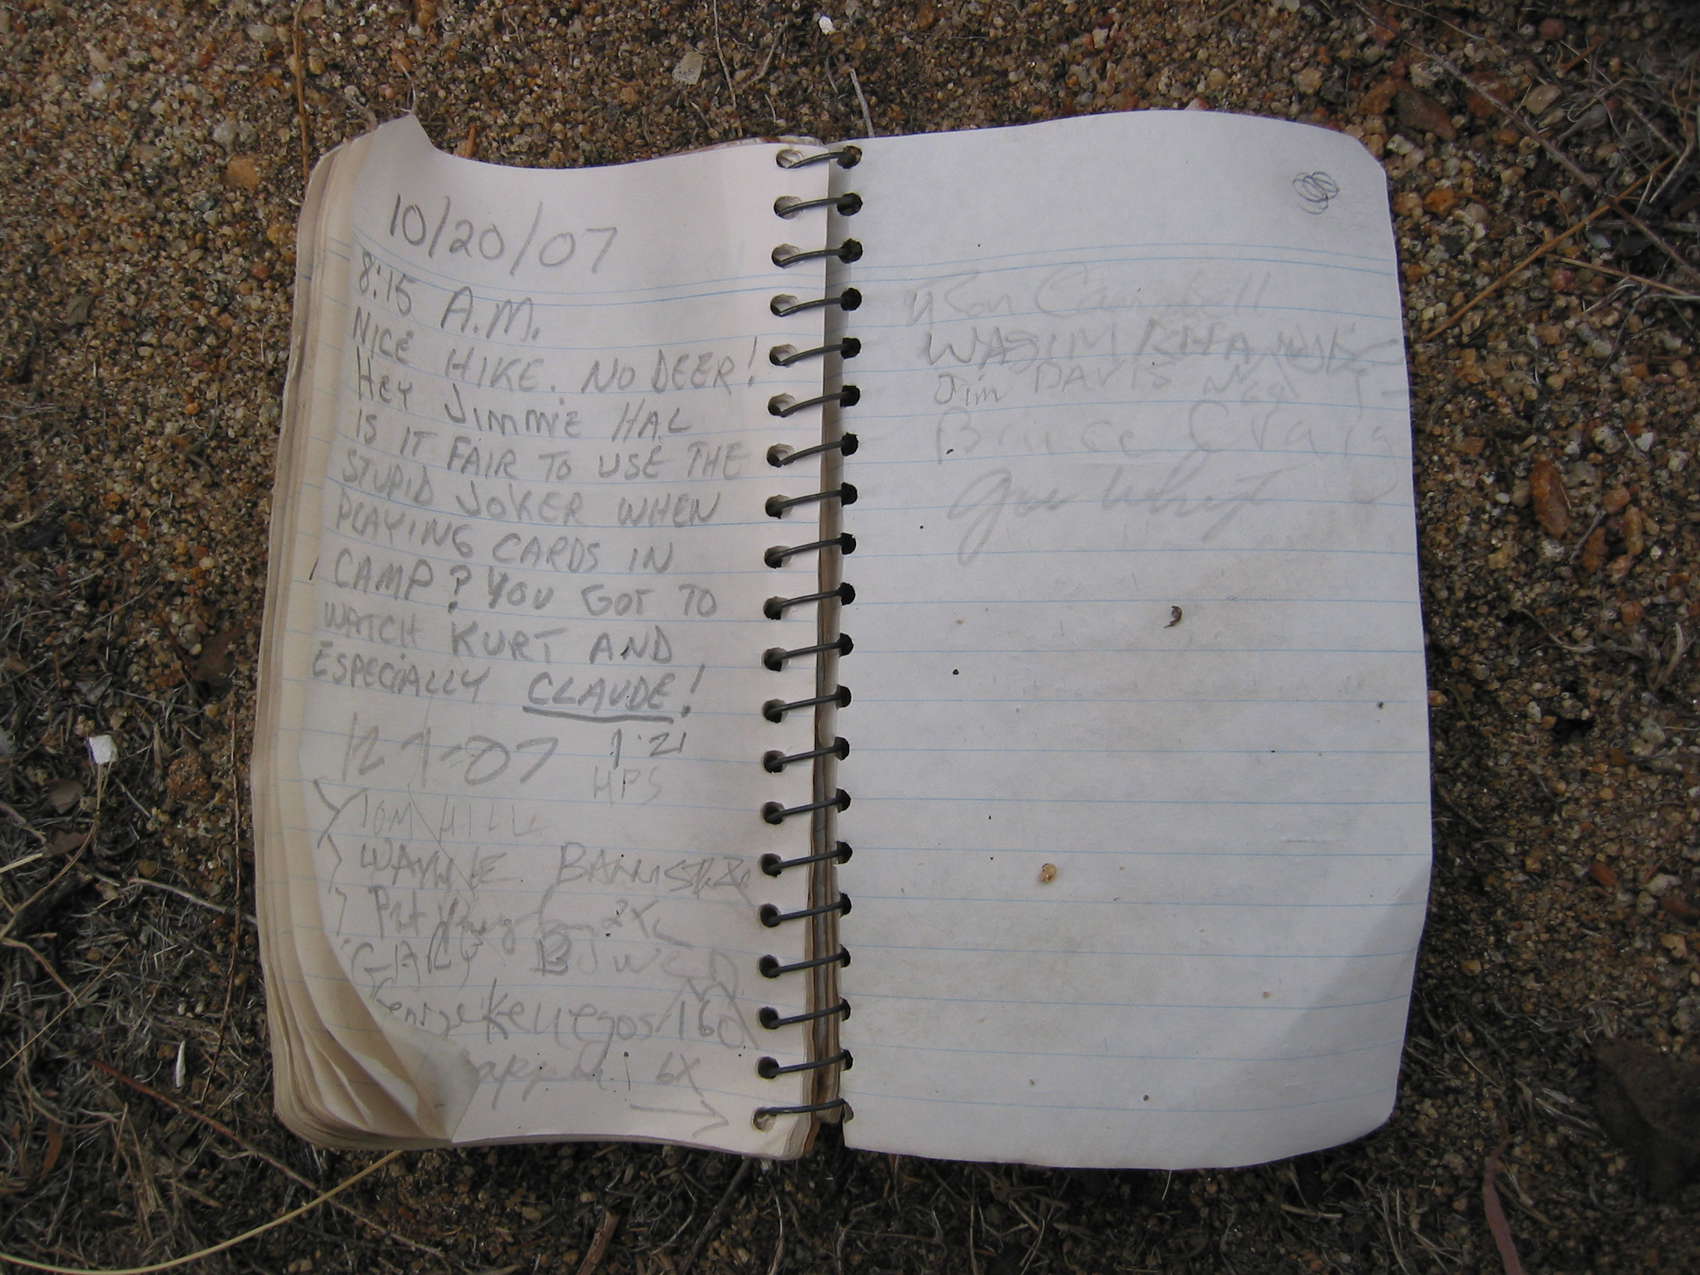 10/20/07
8:15 A.M.
NICE HIKE. NO DEER!
HEY JIMMIE HAL
IS IT FAIR TO USE THE
STUPID JOKER WHEN
PLAYING CARDS IN
CAMP? YOU GOT TO
WATCH KURT AND
ESPECIALLY CLAUDE!
12-1-07 1:21
HPS
TOM HILL
WAYNE
GARY
6X
Campbell
WASIM
Jim DAVIS
Bruce Craig